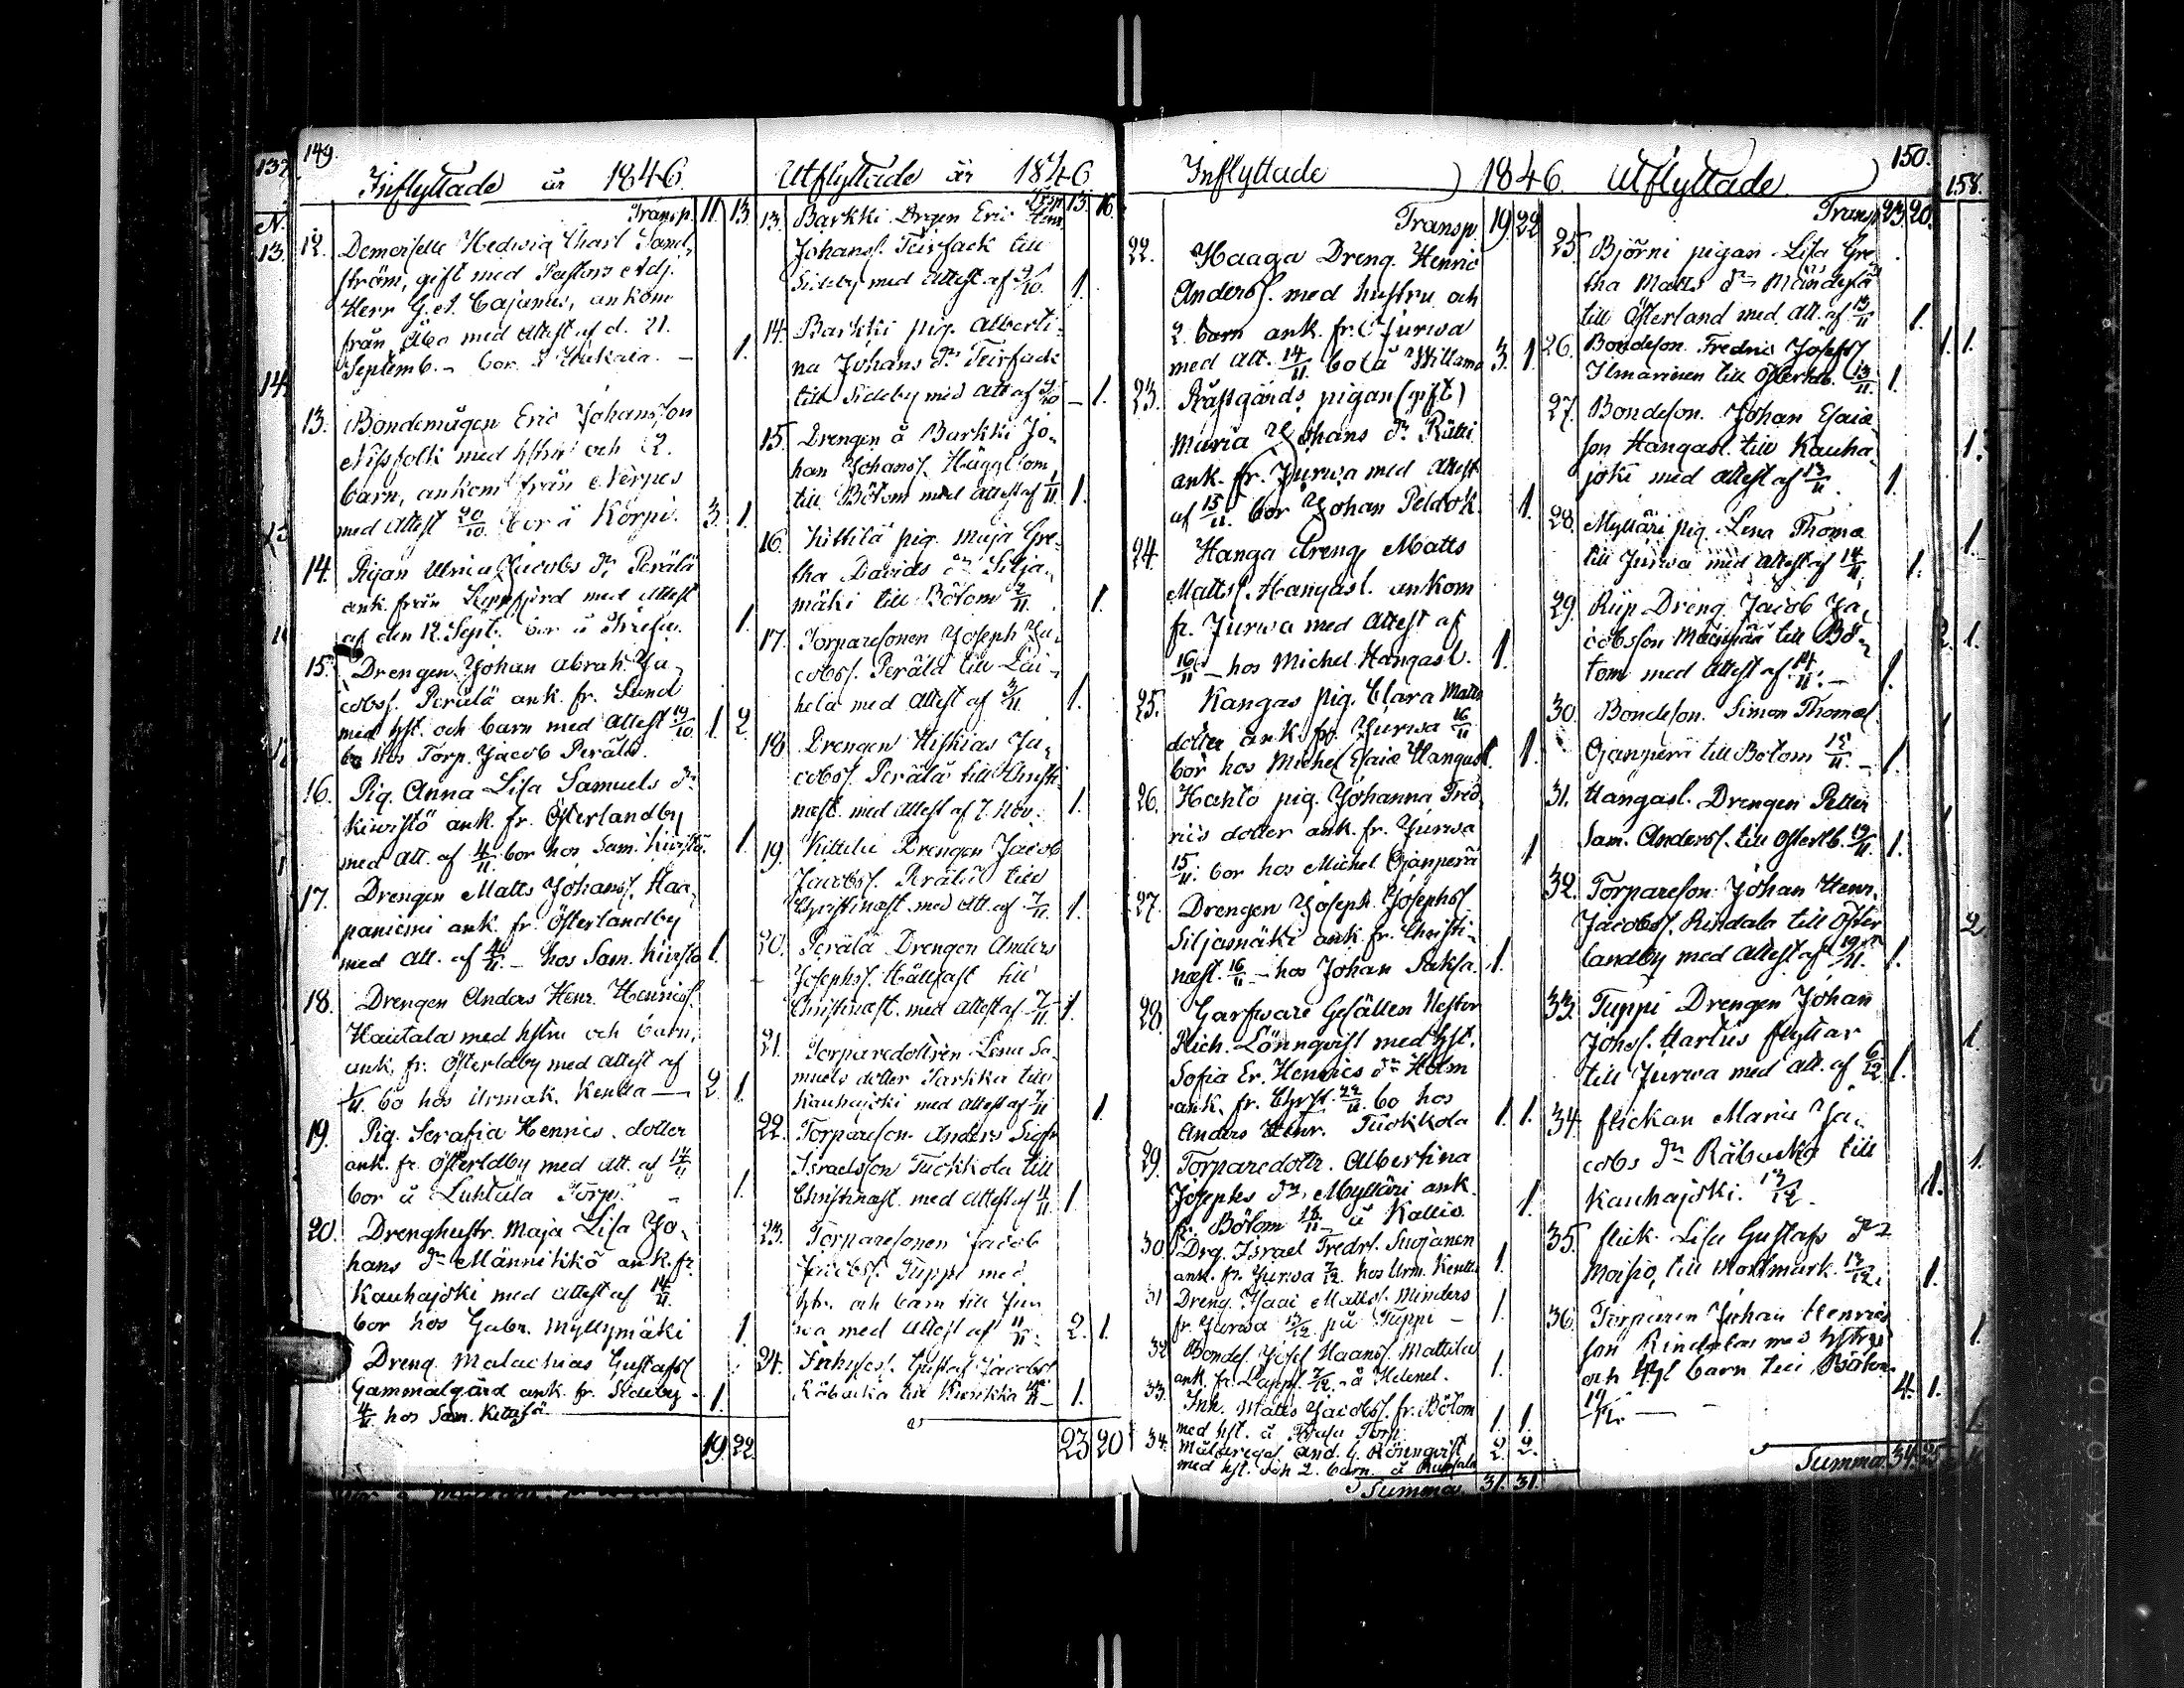 149.
Inflyttade år 1846.
Transp. 11 13
12. Demoiselle Hedwig Charl Sand
ström, gift med Pastors Adj.
Herr G. A. Cajanus, ankom
från Åbo med Attest af d. 21.
Septemb. - bor å - 1.
13. Bondemågen Eric Johansson
Nissfolk med hstru och 2.
barn, ankom från Nerpes
med Attest 20/10. bor å Korpi. 3. 1.
14. Pigan Ulrica Jacobs dr Perälä
ank. från Lappfjerd med Attest
af den 12. Sept. bor å 1.
15. Drengen Johan Abrah. Ja-
cobss. Perälä ank. fr. Lund
med hst. och barn med Attest 19/10 1. 2.
bo hos Torp. Jacob Perälä.
16. Pig. Anna Lisa Samuels dr
Kiwistö ank. fr. Österlandby
med Att. af 4/11. bor hos Sam. Kiwistö. 1.
17. Drengen Matts Johanss. Haa-
paniemi ank. fr. Österlandby
med Att. af 4/11. - hos Sam. Kiwistö 1.
18. Drengen Anders Henr. Henricss.
Hautala med hstru och barn,
ank. fr. Österldby med Attest af
/11. bo hos Urmak. Kentta - 2. 1.
19. Pig. Serafia Henrics dotter
ank. fr. Österldby med Att. af 14/11
bor å Luhtala Torp. - 1.
20. Drenghustr. Maja Lisa Jo-
hans dr Männikkö ank. fr.
Kauhajoki med Attest af 14/11.
bor hos Gabr. Myllymäki 1.
Dreng. Malachias Gustafss
Gammalgård ank. fr. Sideby - 1.
4/11. hos Sam. Kittilä
19. 22.
Utflyttade år 1846
Trsp 15. 16.
13. Barkki Drgen Eric Henr
Johanss. Teirfack till
Sideby med Attest af 9/10. 1.
14. Barkki pig. Alberti-
na Johans dr Teirfack
till Sideby med Att af 9/10 - 1.
15. Drengen å Barkki Jo-
han Johanss. Hägglom
till Bötom med Attest af /11. 1.
16. Kittilä pig. Maja Gre-
tha Davids dr Silja-
mäki till Bötom 2/11. 1.
17. Torparesonen Joseph Ja-
cobss. Perälä till Lai-
hela med Attest af 3/11. 1.
18. Drengen Hiskias Ja-
cobss. Perälä till Christi-
næst. med Attest af 7. Nov. 1.
19. Kittilä Drengen Jacob
Jacobss. Perälä till
Christinæst. med Att. af 7/11. 1.
20. Perälä Drengen Anders
Josephss. Hällfast till
Christinæst. med Attest af 7/11. 1.
21. Torparedottren Lena Sa-
muels dotter Sarkka till
Kauhajoki med Attest af 7/11 1.
22. Torpareson. Anders Sigfr
Israelsson Tuokkola till
Christinæst. med Attest af 11/11. 1.
23. Torparesonen Jacob
Jacobss. Tuppi med
hstr. och barn till Jur
wa med Attest af 11/11. 2. 1.
24. Inhyses. Gustaf Jacobss
Räbacka till 1.
23 20
Inflyttade 1846.
Transp. 19. 22
22. Haaga Dreng. Henric
Anderss. med hustru och
2. barn ank. fr. Jurwa
med Att. 14/11. bo å Willama 3. 1.
23. Råstgårds pigan (gift)
Maria Johans dr Rätti
ank. fr. Jurwa med Attest
af 15/11. bor Johan Peldok. 1.
24. Hanga dreng. Matts
Mattss. Hangasl. ankom
fr. Jurwa med Attest af
16/11 - hos Michel Hangasl. 1.
25. Kangas pig. Clara Matts
dotter ank. fr. Jurwa 16/11
bor hos Michel Esaiæ Hangasl. 1.
26. Hahto pig. Johanna Fred
rics dotter ank. fr. Jurwa
15/11. bor hos Michel Ojanperä 1
27. Drengen Joseph Josephss
Siljamäki ank. fr. Christi-
næst. 16/11 - hos Johan Saksa. 1.
28. Garfware Gesällen Nestor
Mich. Lönnqvist med hst.
Sofia Er. Henrics dr Holm
ank. fr. Chrst. 22/11. bo hos
Anders Henr. Tuokkola 1. 1.
29. Torparedottr. Albertina
Josephs dr. Mylläri ank.
fr. Bötom 16/11 - å Kallio. 1.
30 Drg. Israel Fredrs. Suojanen
ank. fr. Jurwa 7/12. hos Urm. Kentta 1.
31 Dreng. Isaac Mattss. Minders
fr. Jurwa 13/12. på Tuppi - 1.
32 Bondes. Josef Haanss. Mattila
ank. fr. Lappf. 7/12. - å 1.
33. Inh. Matts Jacobss. fr. Bötom
med hst. å Torp 1. 1.
34. And. G. Rönnqvist 2. 2.
med hst. och 2. barn å
Summa 31. 31.
Utflyttade 150.
Transp. 23 20.
25. Björni pigan Lisa Gre
tha Matts dr Mändylä
till Österland med Att. af 13/11 1.
26. Bondeson Fredric Josefss
Ilmarinen till Österldb. 13/11 1.
27. Bondeson. Johan Esaiæ
son Hangasl. till Kauha-
joki med Attest af 13/11. 1.
28. Mylläri pig. Lena Thomæ
till Jurwa med Attest af 14/11. 1.
29. Riip Dreng. Jacob Ja-
cobsson till Bö-
tom med Attest af 14/11. - 1.
30. Bondeson. Simon Thomæ
Ojanperä till Bötom 15/11. - 1.
31. Hangasl. Drengen Petter
Sam. Anderss. till Österlb. 19/11. 1.
32. Torpareson Johan Henr.
Jacobss. Rindala till Öster
landby med Attest af 19/11. 1.
33. Tuppi Drengen Johan
Johss. Martus flyttar
till Jurwa med Att. af 6/12 1.
34. flickan Maria Ja-
cobs dr Räbacka till
Kauhajoki. 12/12. 1.
35. flick. Lisa Gustafs dr
Moisio, till Mortmark. 12/12. 1.
36. Torparen Johan Henrics
son Rindalas med hstru
och barn till Bötom 4. 1.
Summa 34. 25
158.